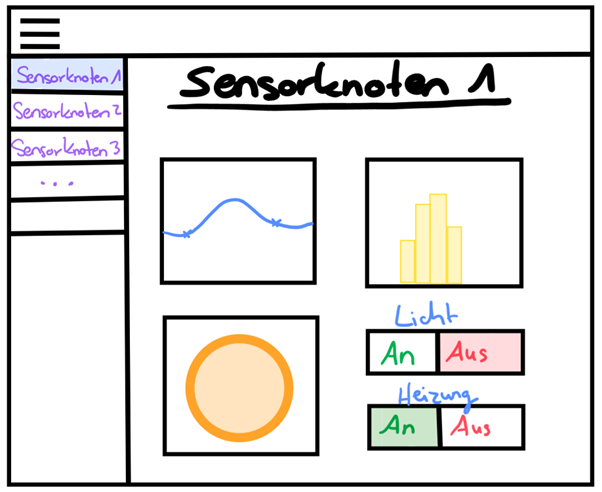 Sensorknoten 1
Sensorknoten 2
Sensorknoten 3
...
Sensorknoten 1
Licht
An Aus
Heizung
An Aus